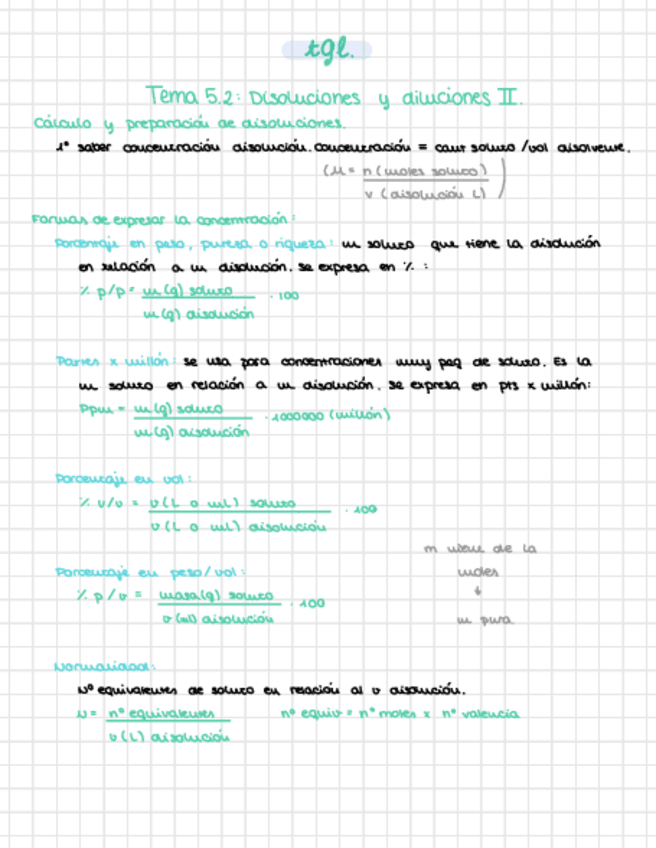 tgl.
Tema 5.2: Disoluciones y diluciones II.
Cálculo y preparación de disoluciones.
1º saber concentración disolución. concentración = cant soluto / vol disolvente.
(M = n (moles soluto)
v (disolución L) )
Formas de expresar la concentración:
Porcentaje en peso, pureza o riqueza: m soluto que tiene la disolución
en relación a m disolución. se expresa en % :
% p/p = m (g) soluto · 100
m (g) disolución
Partes x millón: se usa para concentraciones muy peq de soluto. Es la
m soluto en relación a m disolución. se expresa en pts x millón:
Ppm = m (g) soluto · 1000000 (millón)
m (g) disolución
Porcentaje en vol:
% v/v = v (L o mL) soluto · 100
v (L o mL) disolución
m viene de la
moles
↓
m pura
Porcentaje en peso/vol:
% p/v = masa (g) soluto · 100
v (ml) disolución
Normalidad:
Nº equivalentes de soluto en relación al v disolución.
N = nº equivalentes
v (L) disolución
nº equiv = nº moles x nº valencia